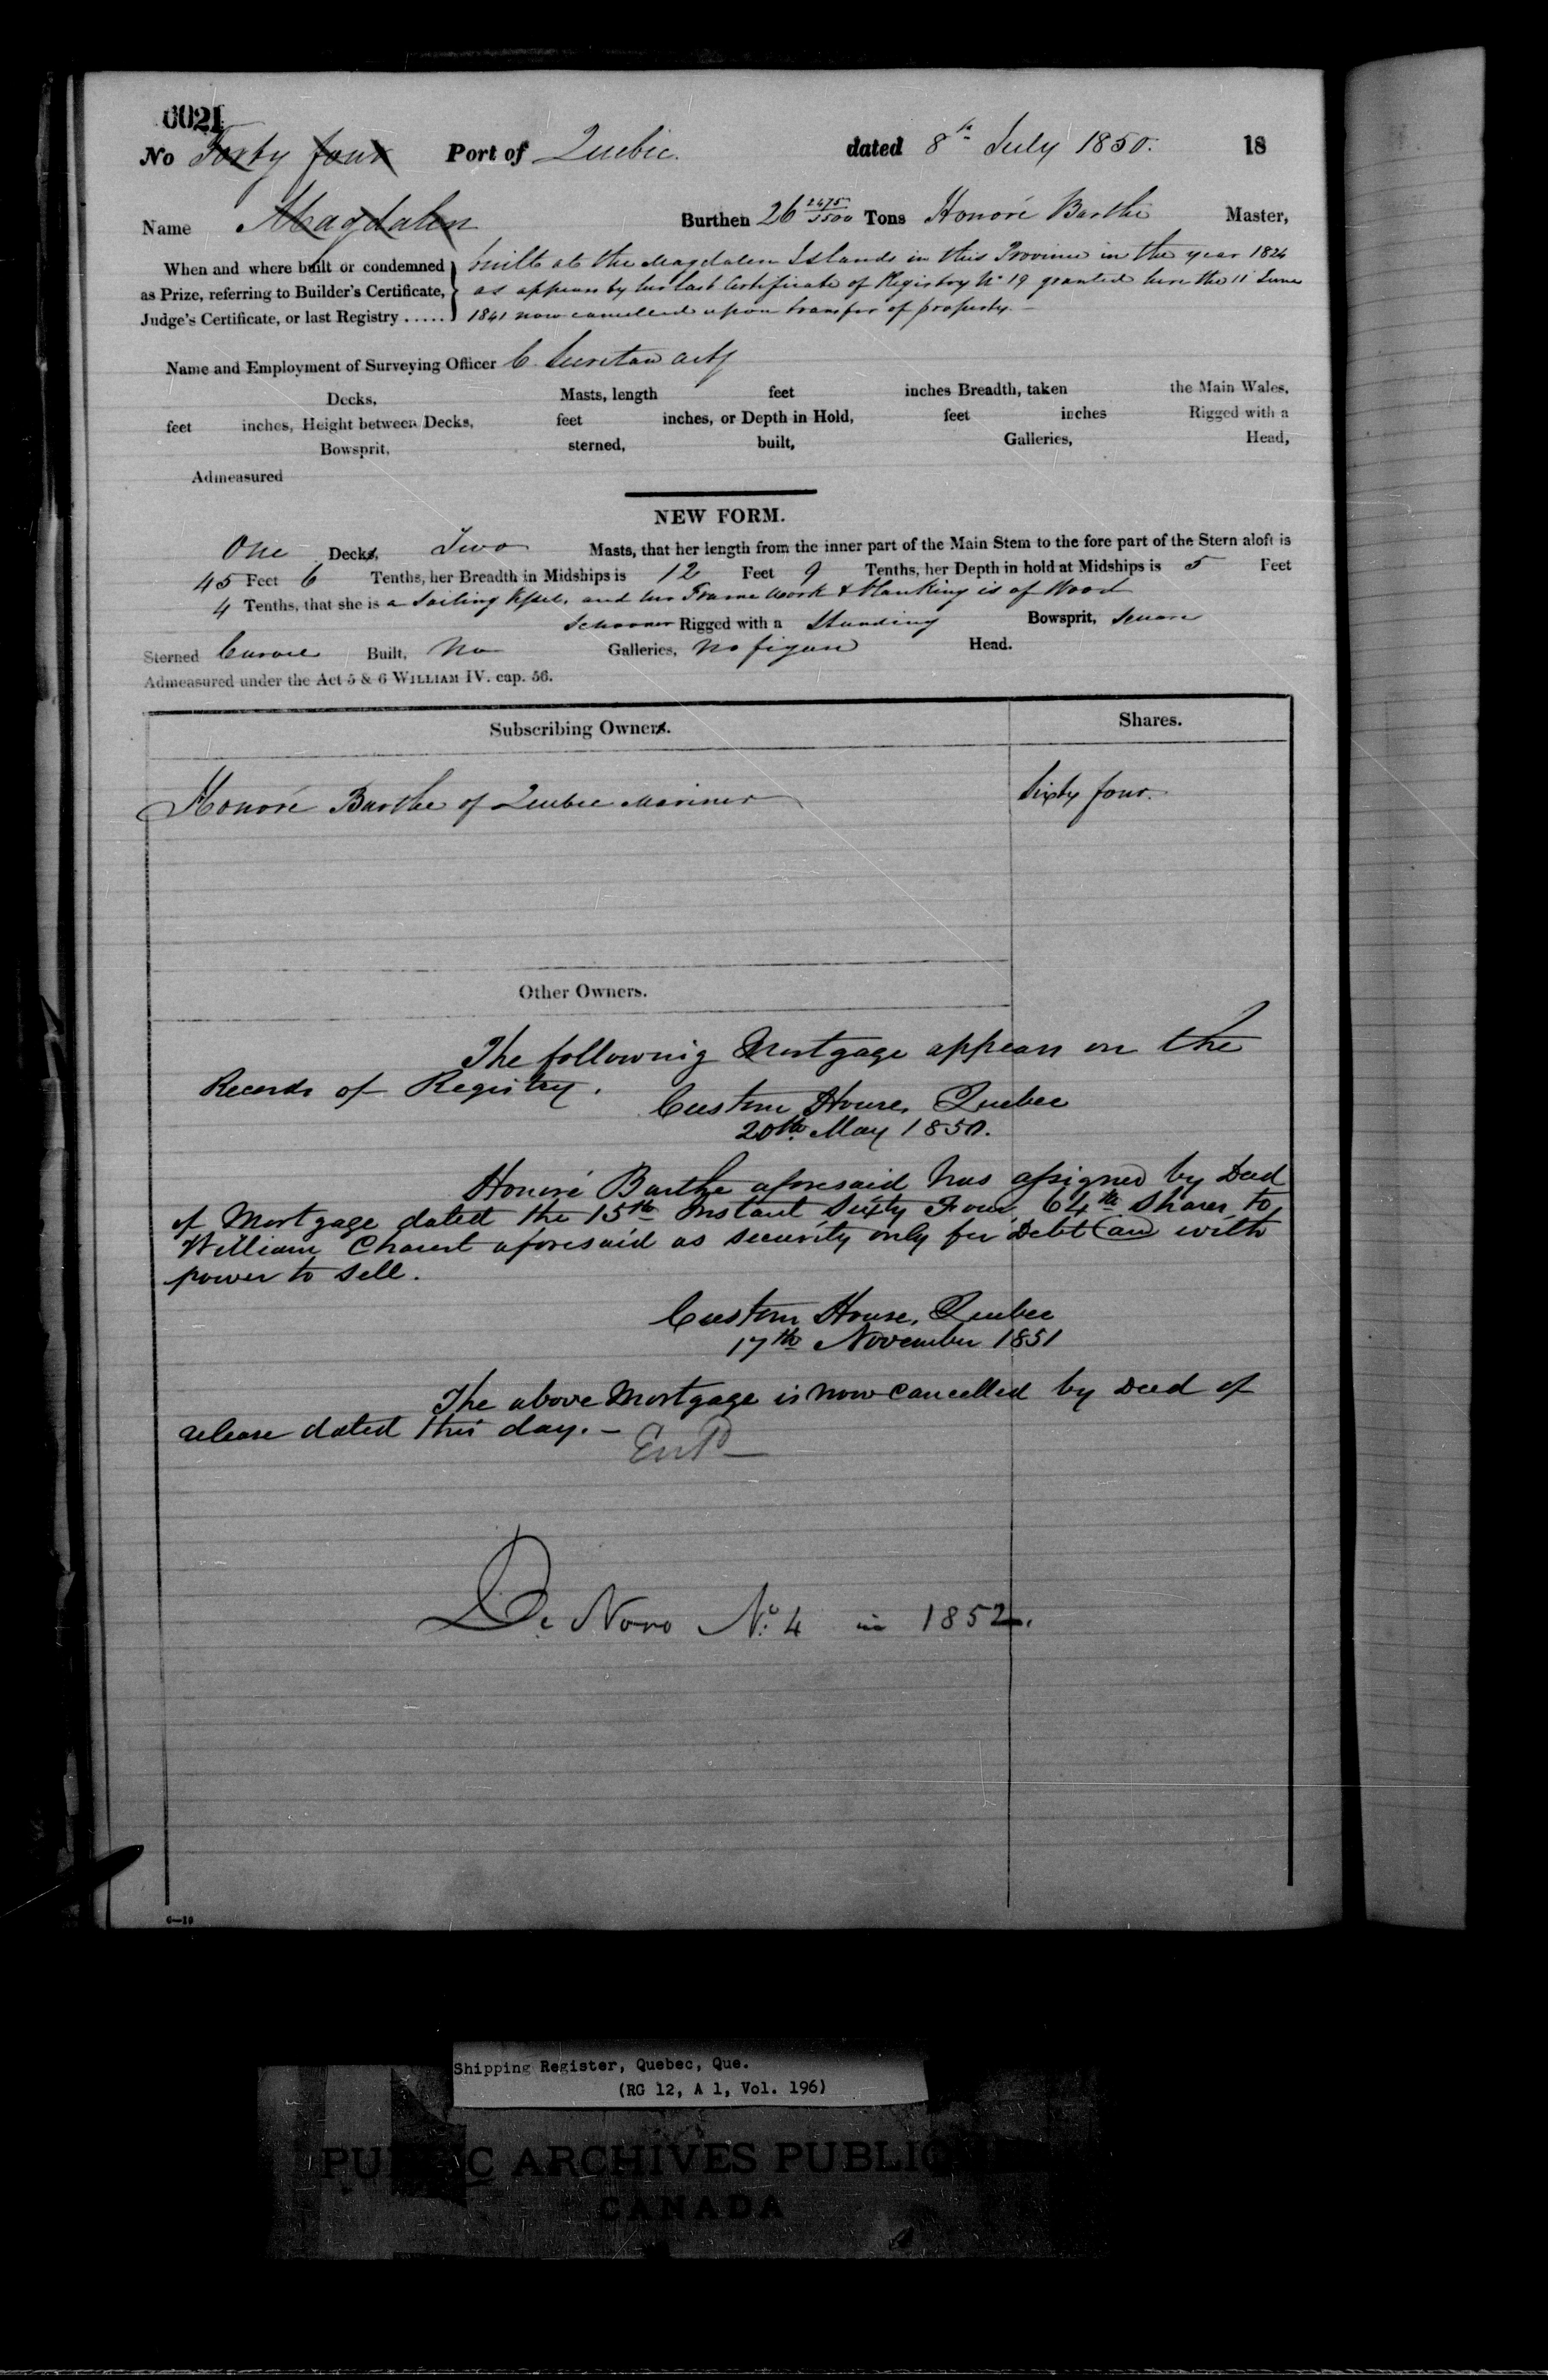 0021
No Forty four Port of Quebec. dated 8th July 1850. 18
Name Magdalen Burthen 26 2475/3500 Tons Honoré Barthe Master,
When and where built or condemned built at the Magdalen Islands in this Province in the year 1824
as Prize, referring to Builder's Certificate, as appears by her last Certificate of Registry No 19 granted here the 11 June
Judge's Certificate, or last Registry ..... 1841 now cancelled upon transfer of property.
Name and Employment of Surveying Officer C
Decks, Masts, length feet inches Breadth, taken the Main Wales,
feet inches, Height between Decks, feet inches, or Depth in Hold, feet inches Rigged with a
Bowsprit, sterned, built, Galleries, Head,
Admeasured
NEW FORM.
One Decks, Two Masts, that her length from the inner part of the Main Stem to the fore part of the Stern aloft is
45 Feet 6 Tenths, her Breadth in Midships is 12 Feet 9 Tenths, her Depth in hold at Midships is 5 Feet
4 Tenths, that she is a Sailing Vessel, and her Frame Work & Planking is of Wood
Schooner Rigged with a Standing Bowsprit, Square
Sterned Carvel Built, No Galleries, No figure Head.
Admeasured under the Act 5 & 6 WILLIAM IV. cap. 56.
Subscribing Owners. Shares.
Honoré Barthe of Quebec Mariner Sixty four.
Other Owners.
The following Mortgage appears on the
Records of Registry.
Custom House, Quebec
20th May 1850.
Honoré Barthe aforesaid has assigned by Deed
of Mortgage dated the 15th Instant Sixty Four 64th Shares to
William Charest aforesaid as security only for Debt and with
power to sell.
Custom House, Quebec
17th November 1851
The above Mortgage is now cancelled by Deed of
release dated this day. —
Entd
De Novo No. 4 in 1852.
6—10
Shipping Register, Quebec, Que.
(RG 12, A 1, Vol. 196)
PUBLIC ARCHIVES PUBLI
CANADA